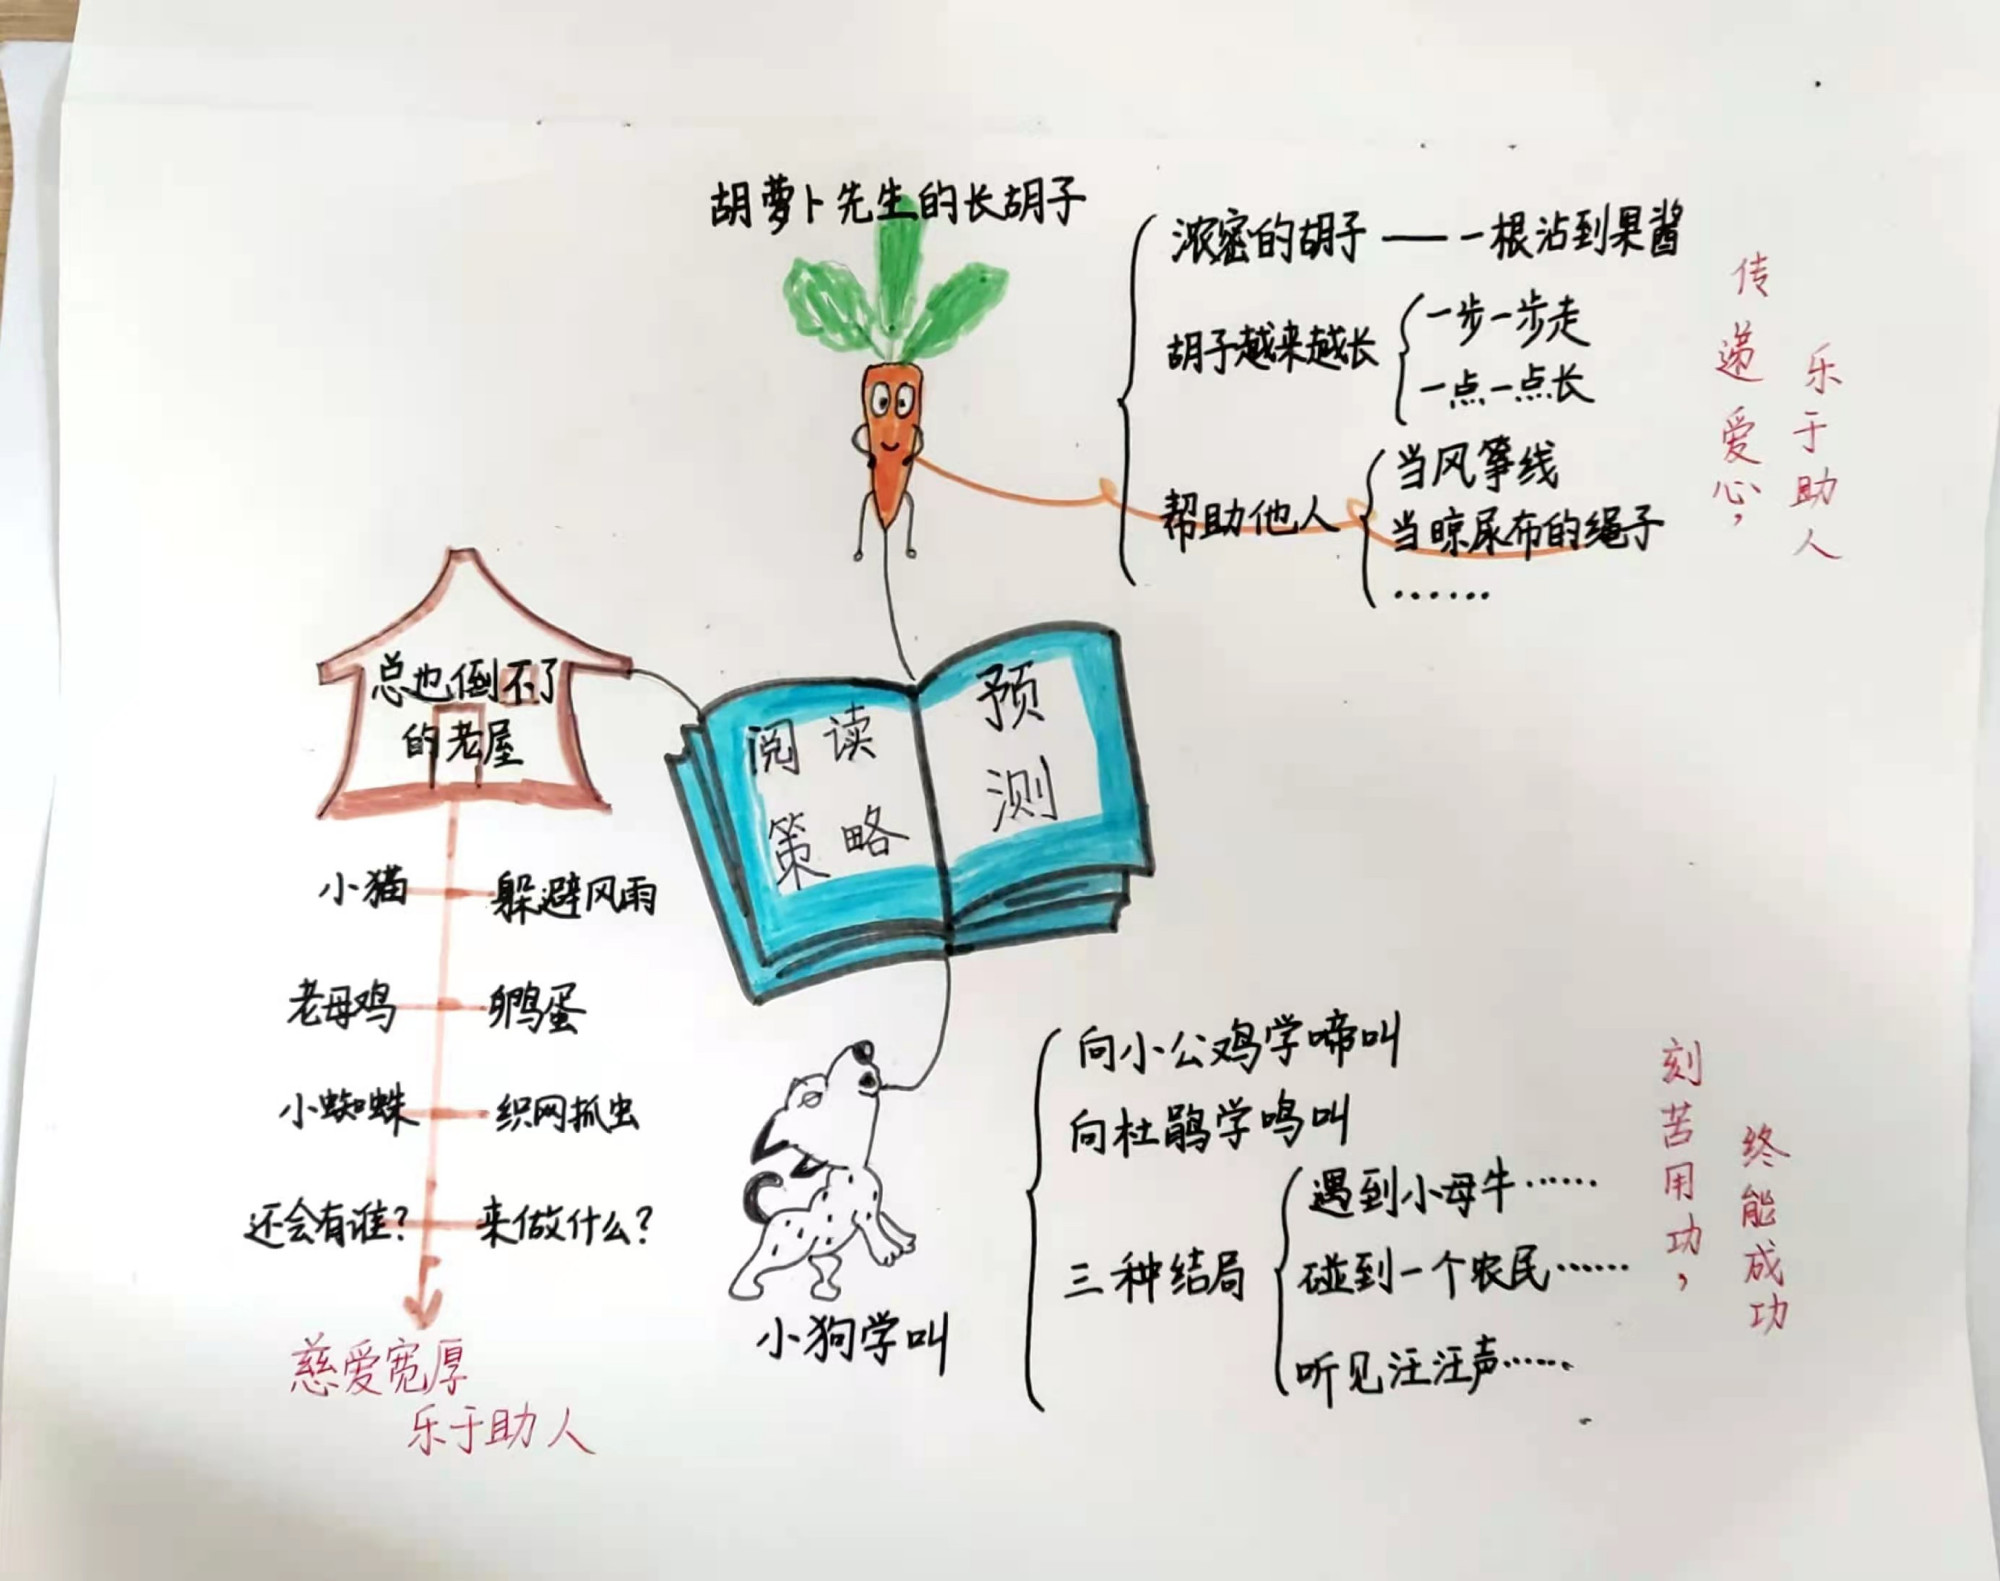 胡萝卜先生的长胡子
浓密的胡子——一根沾到果酱
胡子越来越长
一步一步走
一点一点长
帮助他人
当风筝线
当晾尿布的绳子
……
传递爱心，
乐于助人
总也倒不了
的老屋
阅读
策略
预
测
小猫 躲避风雨
老母鸡 孵蛋
小蜘蛛 织网抓虫
还会有谁？ 来做什么？
慈爱宽厚
乐于助人
小狗学叫
向小公鸡学啼叫
向杜鹃学鸣叫
三种结局
遇到小母牛……
碰到一个农民……
听见汪汪声……
刻苦用功，
终能成功